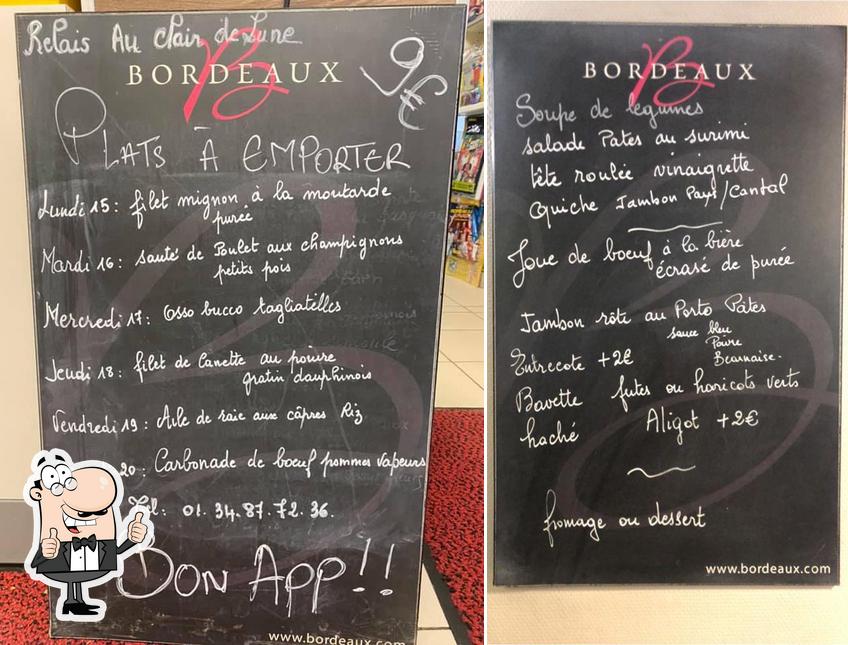 Relais Au Clair de Lune
BORDEAUX
9€
PLATS À EMPORTER
Lundi 15 : filet mignon à la moutarde
purée
Mardi 16 : sauté de Poulet aux champignons
petits pois
Mercredi 17 : Osso bucco tagliatelles
Jeudi 18 : filet de Canette au poivre
gratin dauphinois
Vendredi 19 : Aile de raie aux câpres Riz
20 : Carbonade de boeuf pommes vapeurs
Tel : 01.34.87.72.36.
BON APP!!
www.bordeaux.com
BORDEAUX
Soupe de legumes
salade Pates au surimi
tête roulée vinaigrette
Quiche Jambon Pays/Cantal
Joue de boeuf à la bière
écrasé de purée
Jambon rôti au Porto Pâtes
sauce bleu
Poivre
Bearnaise.
Entrecote +2€
Bavette frites ou haricots verts
haché Aligot +2€
fromage ou dessert
www.bordeaux.com